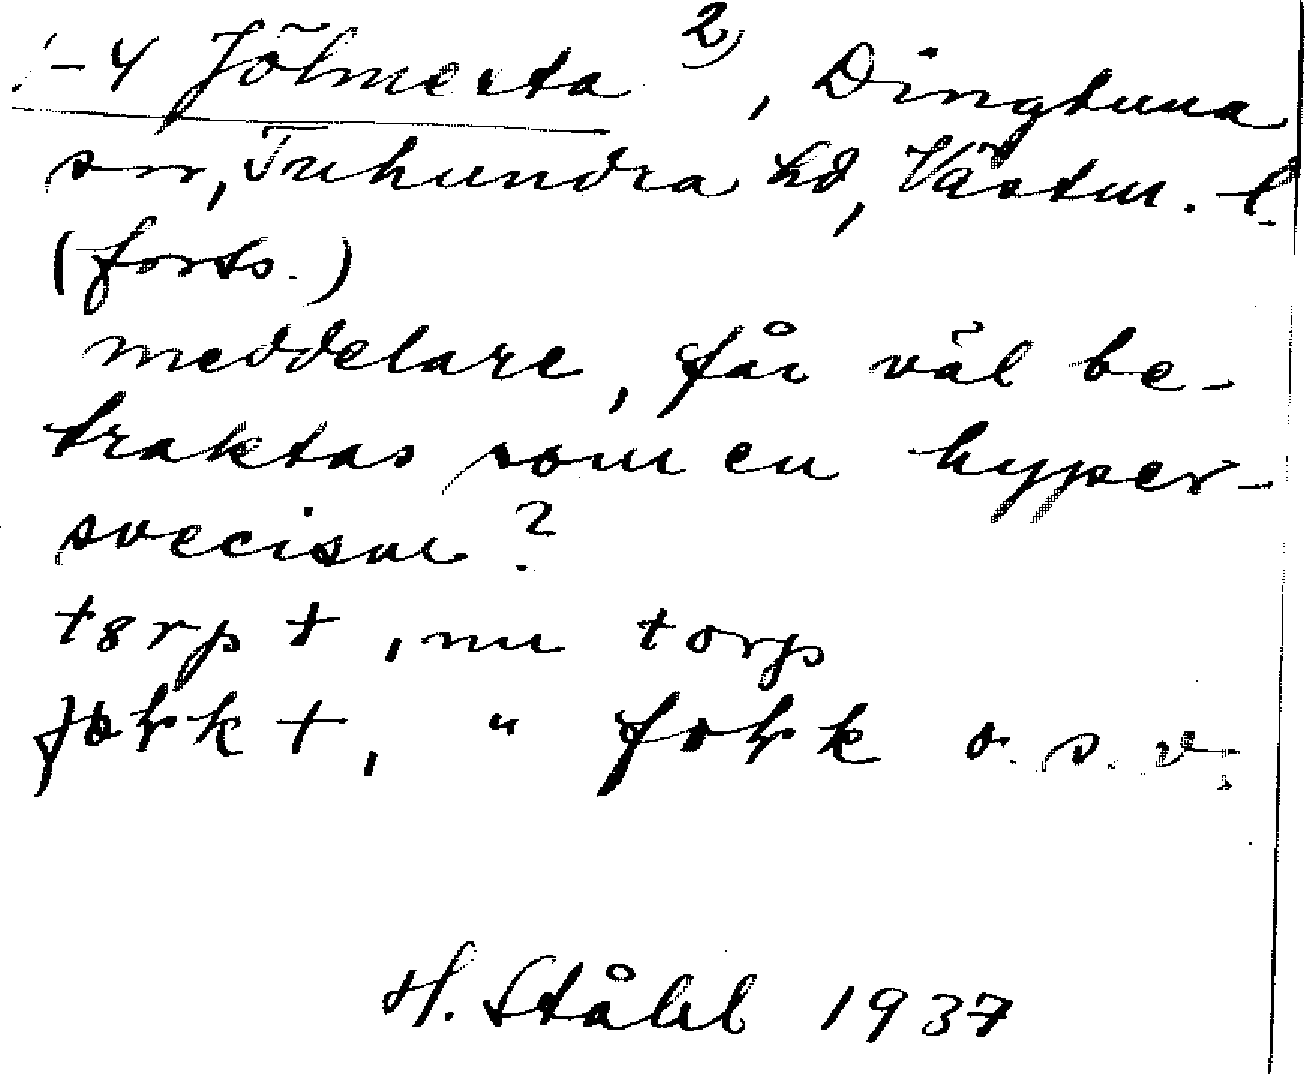 1-4 Jölmesta 2), Dingtuna
sn, Tuhundra hd, Västm. l.
(forts.)
meddelare, får väl be-
traktas som en hyper-
svecism?
tørp †, nu torp
fołk †, " fołk o.s.v.
H. Ståhl 1937